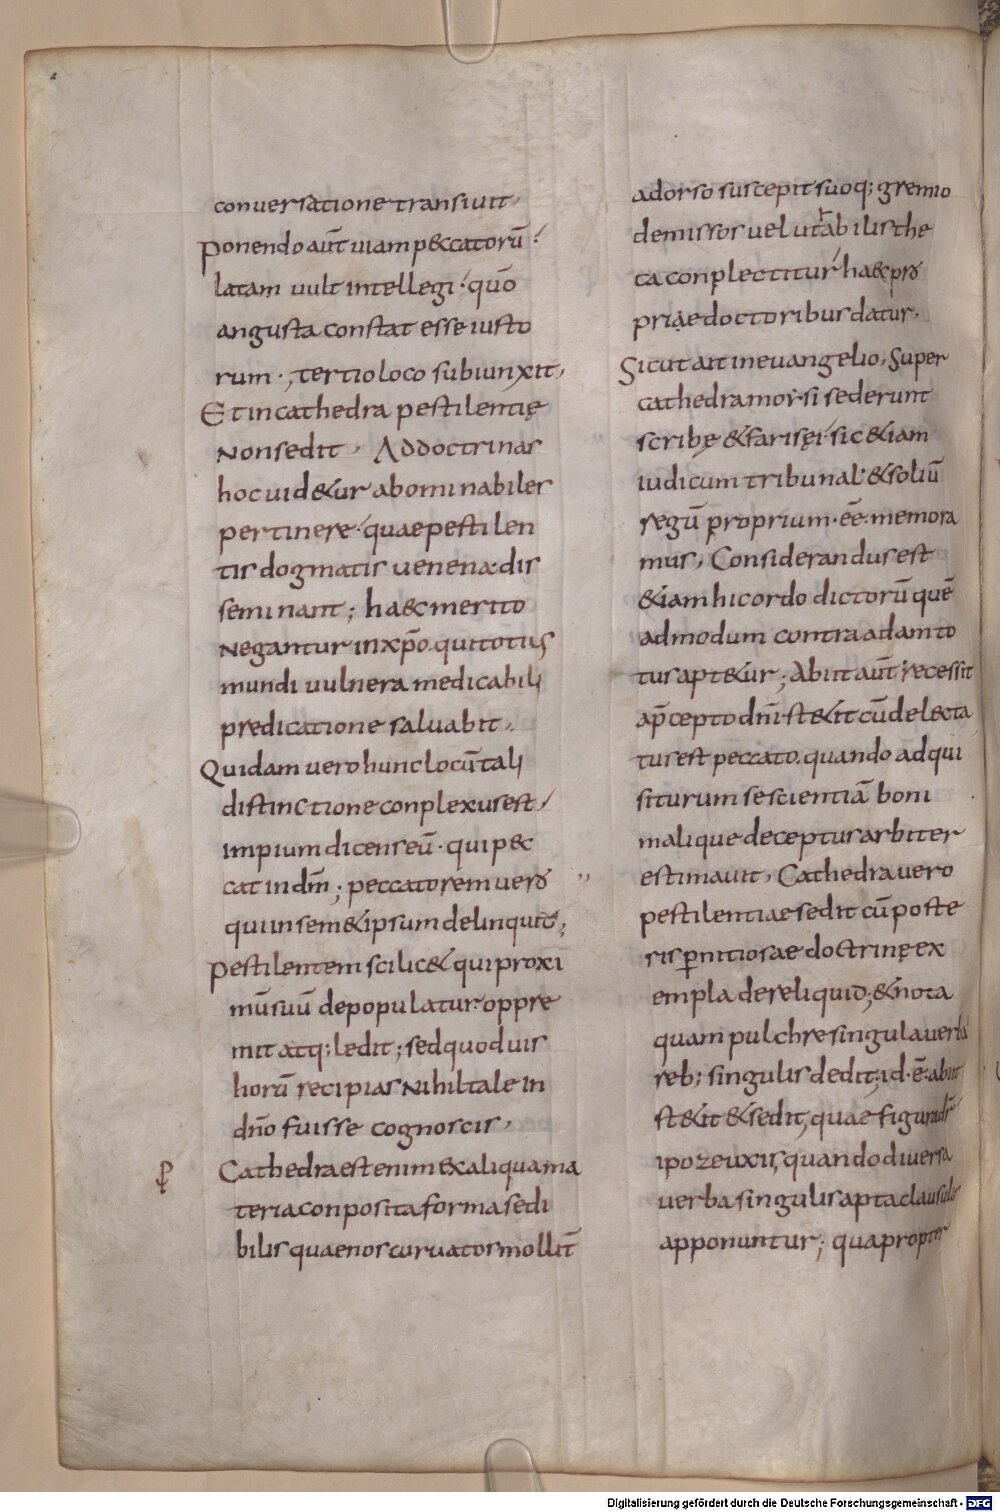 conuersatione transiuit,
ponendo aut̄ uiam p&ccatorū·
latam uult intellegi· quō
angusta constat esse iusto
rum·, tertio loco subiunxit,
Et in cathedra pestilentię
Non sedit, Ad doctrinas
hoc uid&ur abominabiles
pertinere· quae pestilen
tis dogmatis uenena dis
seminant; haec merito
Negantur in xp̄o· qui totius
mundi uulnera medicabili
predicatione saluabit,
Quidam uero hunc locū tali
distinctione conplexus est,
impium dicens eū· qui pec
cat in dm̄; peccatorem uero
qui in sem&ipsum delinquit;
Pestilentem scilic& qui proxi
mū suū depopulatur· oppre
mit atq; ledit; sed quoduis
horū recipias Nihil tale in
dn̄o fuisse cognoscis,
Cathedra est enim ex aliqua ma
teria conposita forma sedi
bilis quae nos curuatos mollit̄
a dorso suscepit suoq; gremio
demissos uel ut abilis the
ca conplectitur haec pro
priae doctoribus datur,
Sicut ait in euangelio, Super
cathedra mosi sederunt
scribę & farisęi· sic &iam
iudicum tribunal· & soliū
regū proprium· eē· memora
mus, Considerandus est
&iam hic ordo dictorū quē
admodum contra adam to
tus apt&ur; Abiit aut̄ recessit
a p̄cepto dn̄i· st&it cū delecta
tus est peccato· quando adqui
siturum se scientiā boni
malique deceptus arbiter
estimauit, Cathedra uero
pestilentiae sedit cū poste
ris pernitiosae doctrinę ex
empla dereliquid; & nota
quam pulchre singula uerba
reb; singulis dedit; id· ē· abiit
st&it & sedit, quae figura dr̄
ipozeuxis, quando diuersa
uerba singulis apta clausulis
apponuntur; quapropter